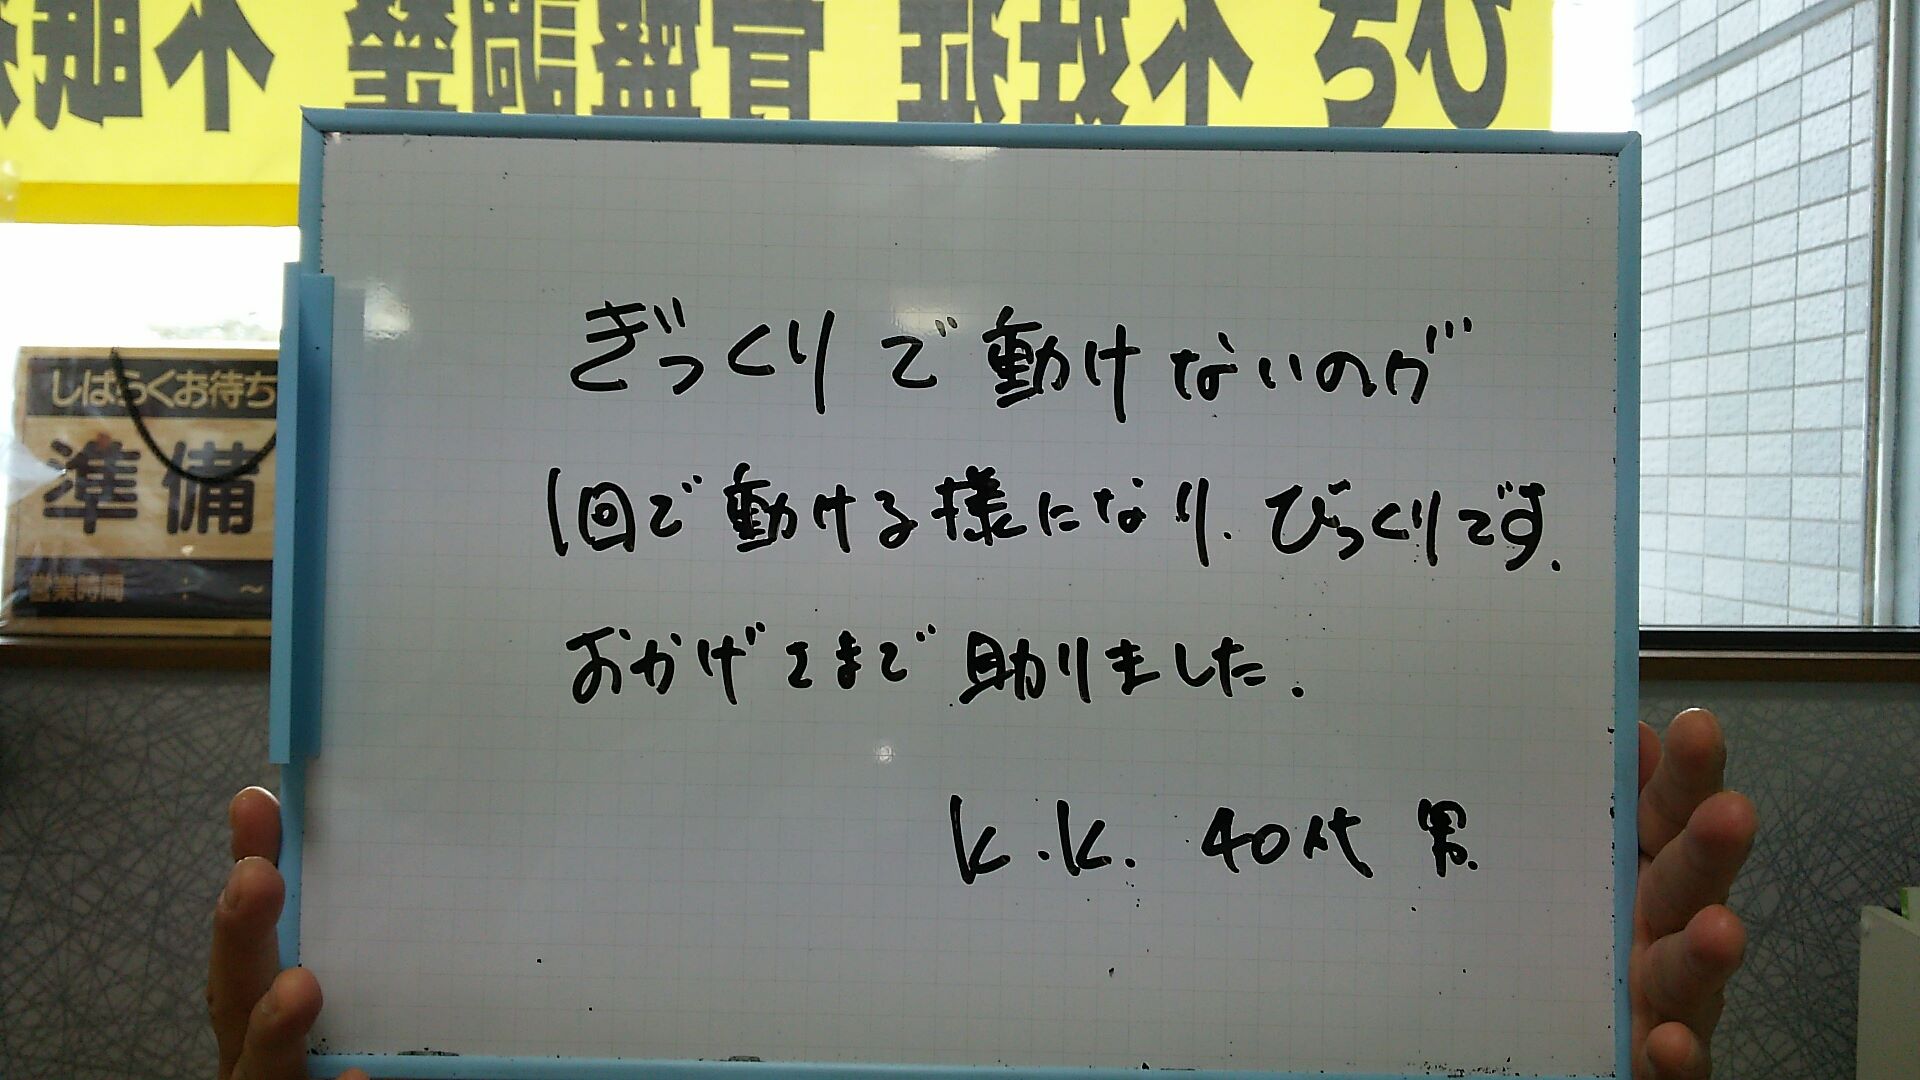 むち 不妊症 骨盤調整 不眠
ぎっくりで動けないのが
1回で動ける様になり、びっくりです.
おかげさまで 助りました.
K.K. 40代 男.
しばらくお待ち
準備
営業時間 : ～